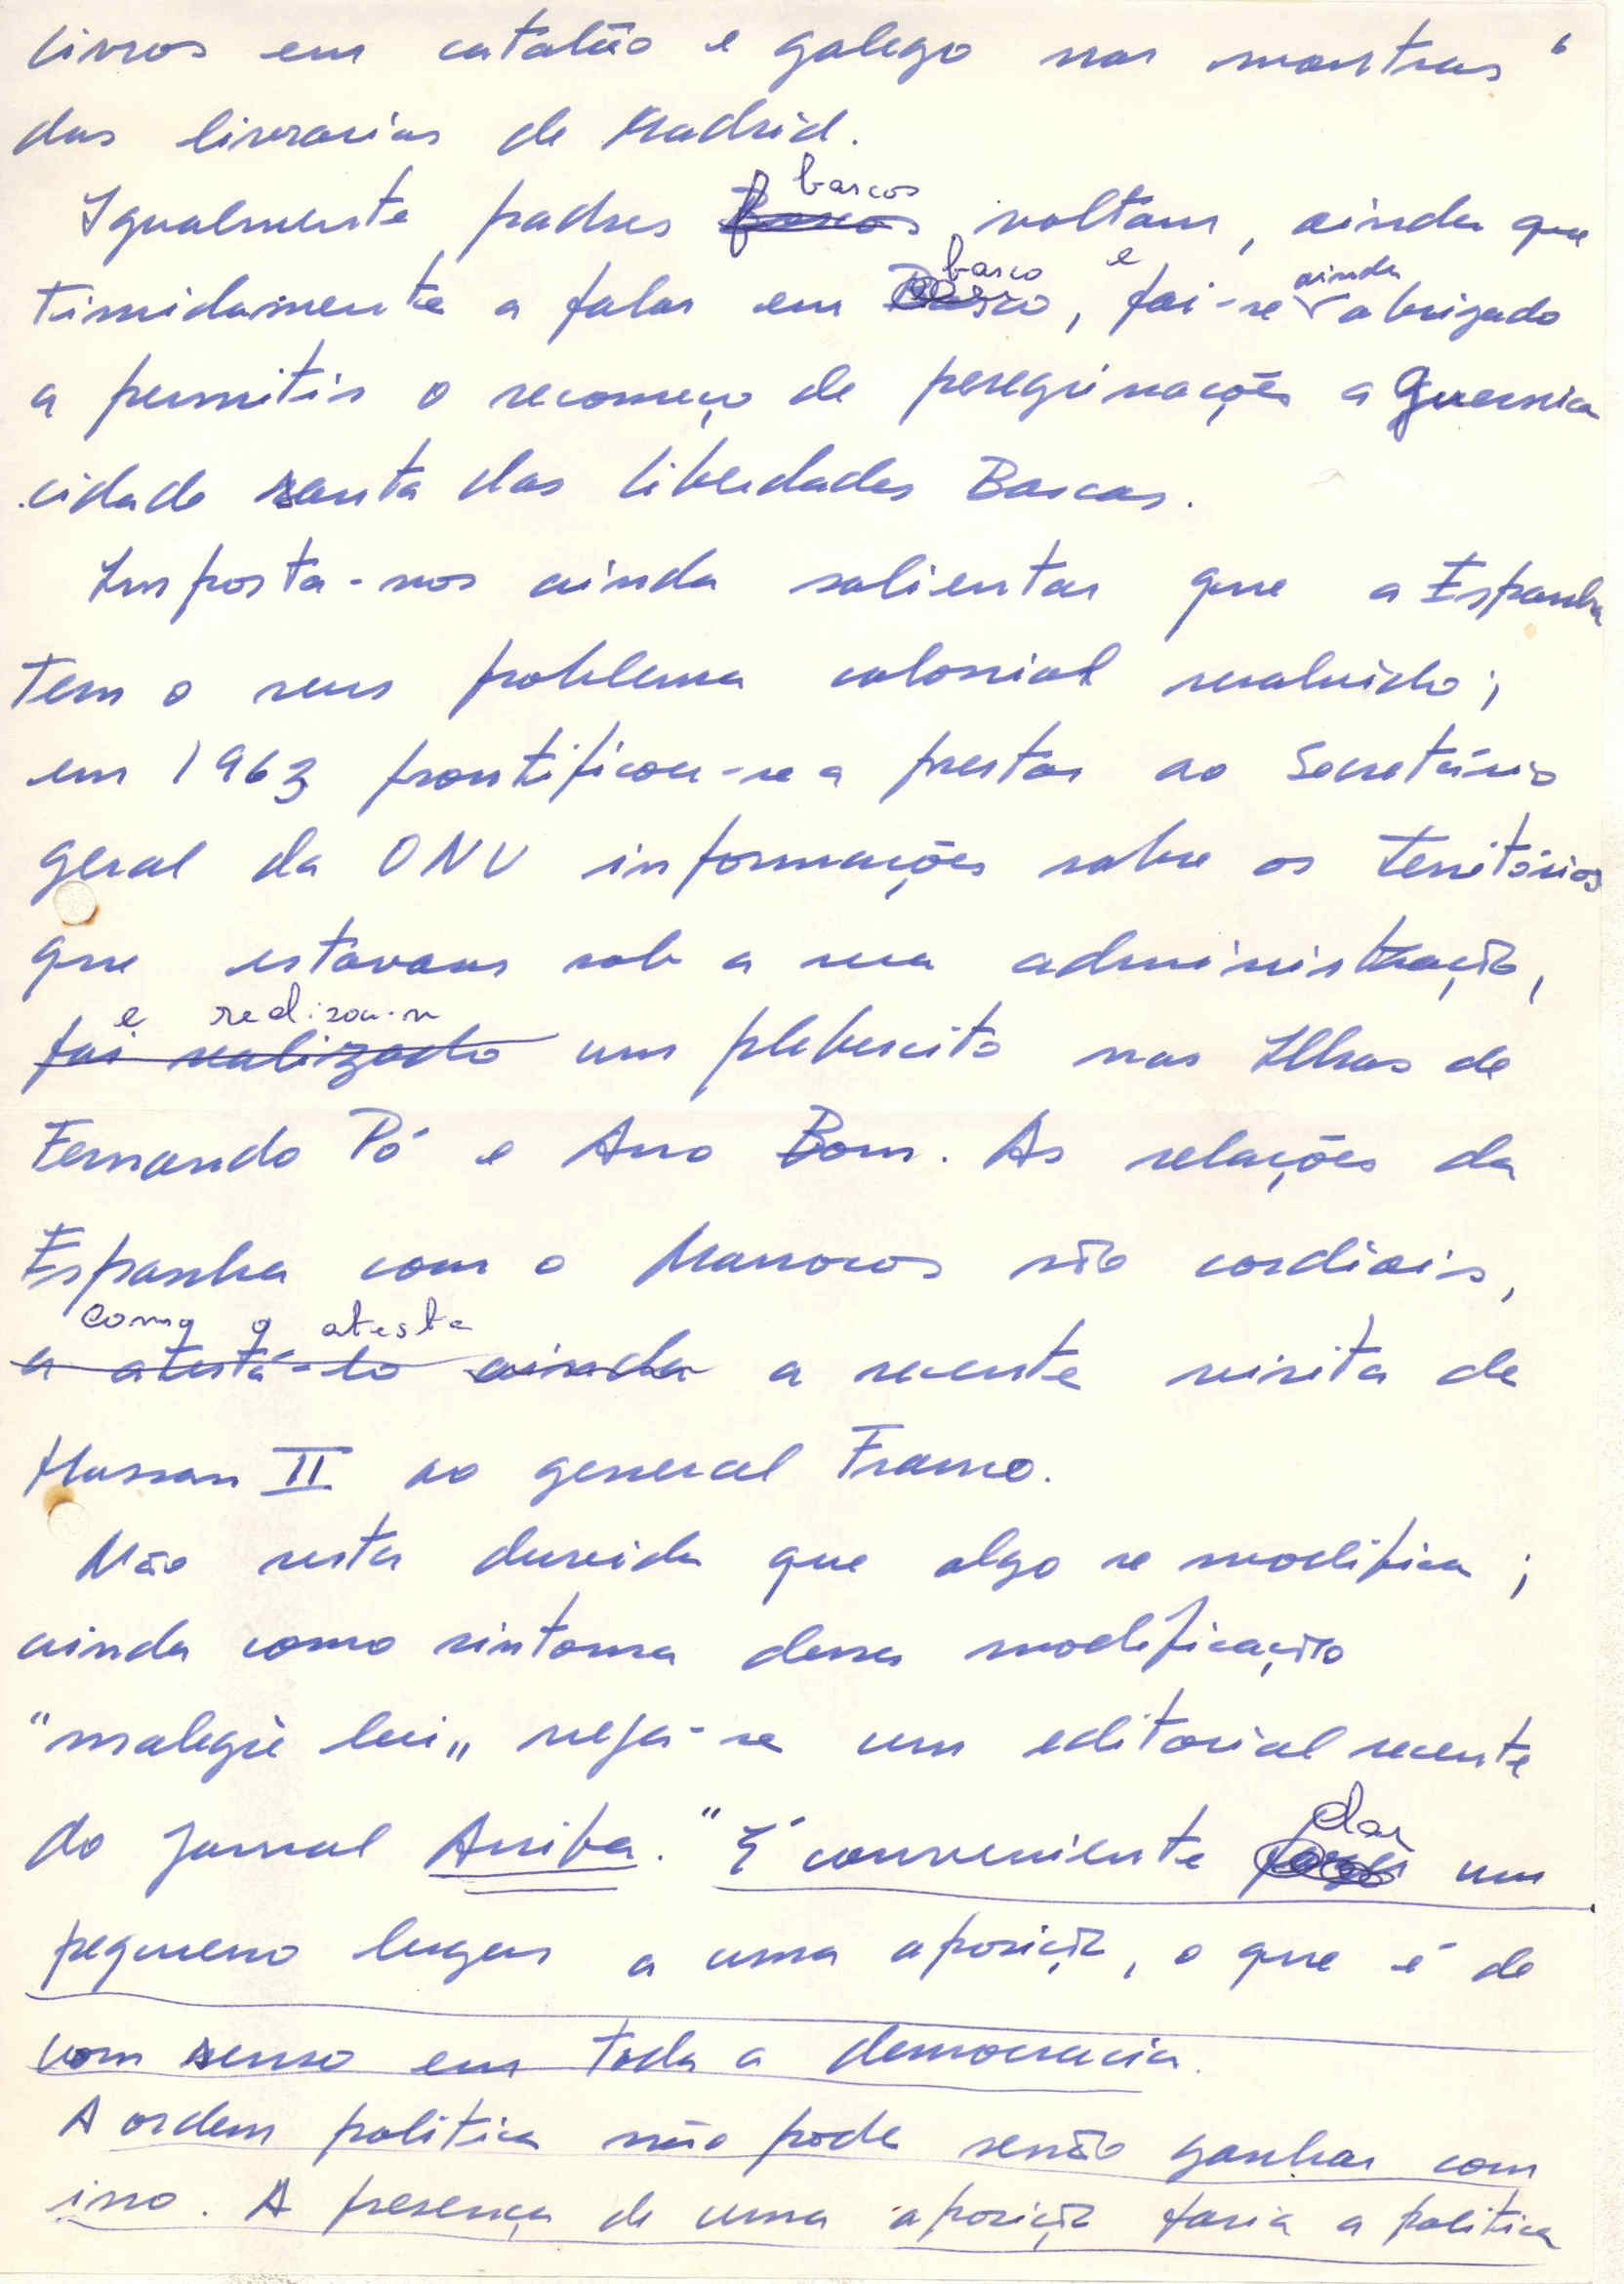 livros em catalão e galego nas montras 6
das livrarias de Madrid.
Igualmente padres bascos voltam, ainda que
timidamente a falar em basco, e foi-se ainda obrigado
a permitir o recomeço de peregrinações a Guernica
cidade santa das liberdades Bascas.
Importa-nos ainda salientar que a Espanha
tem o seus problema colonial resolvido;
em 1963 prontificou-se a prestar ao Secretário
geral da ONU informações sobre os territórios
que estavam sob a sua administração,
e realizou-se
foi realizado um plebescito nas Ilhas de
Fernando Pó e Ano Bom. As relações da
Espanha com o Marrocos são cordiais,
como o atesta
a atestá-lo ainda a recente visita de
Hassan II ao general Franco.
Não resta duvida que algo se modifica;
ainda como sintoma dessa modificação
"malgrè lui" veja-se um editorial recente
do jornal Arriba. "É conveniente dar um
pequeno lugar a uma oposição, o que é de
bom senso em toda a democracia.
A ordem politica não pode senão ganhar com
isso. A presença de uma oposição faria a politica